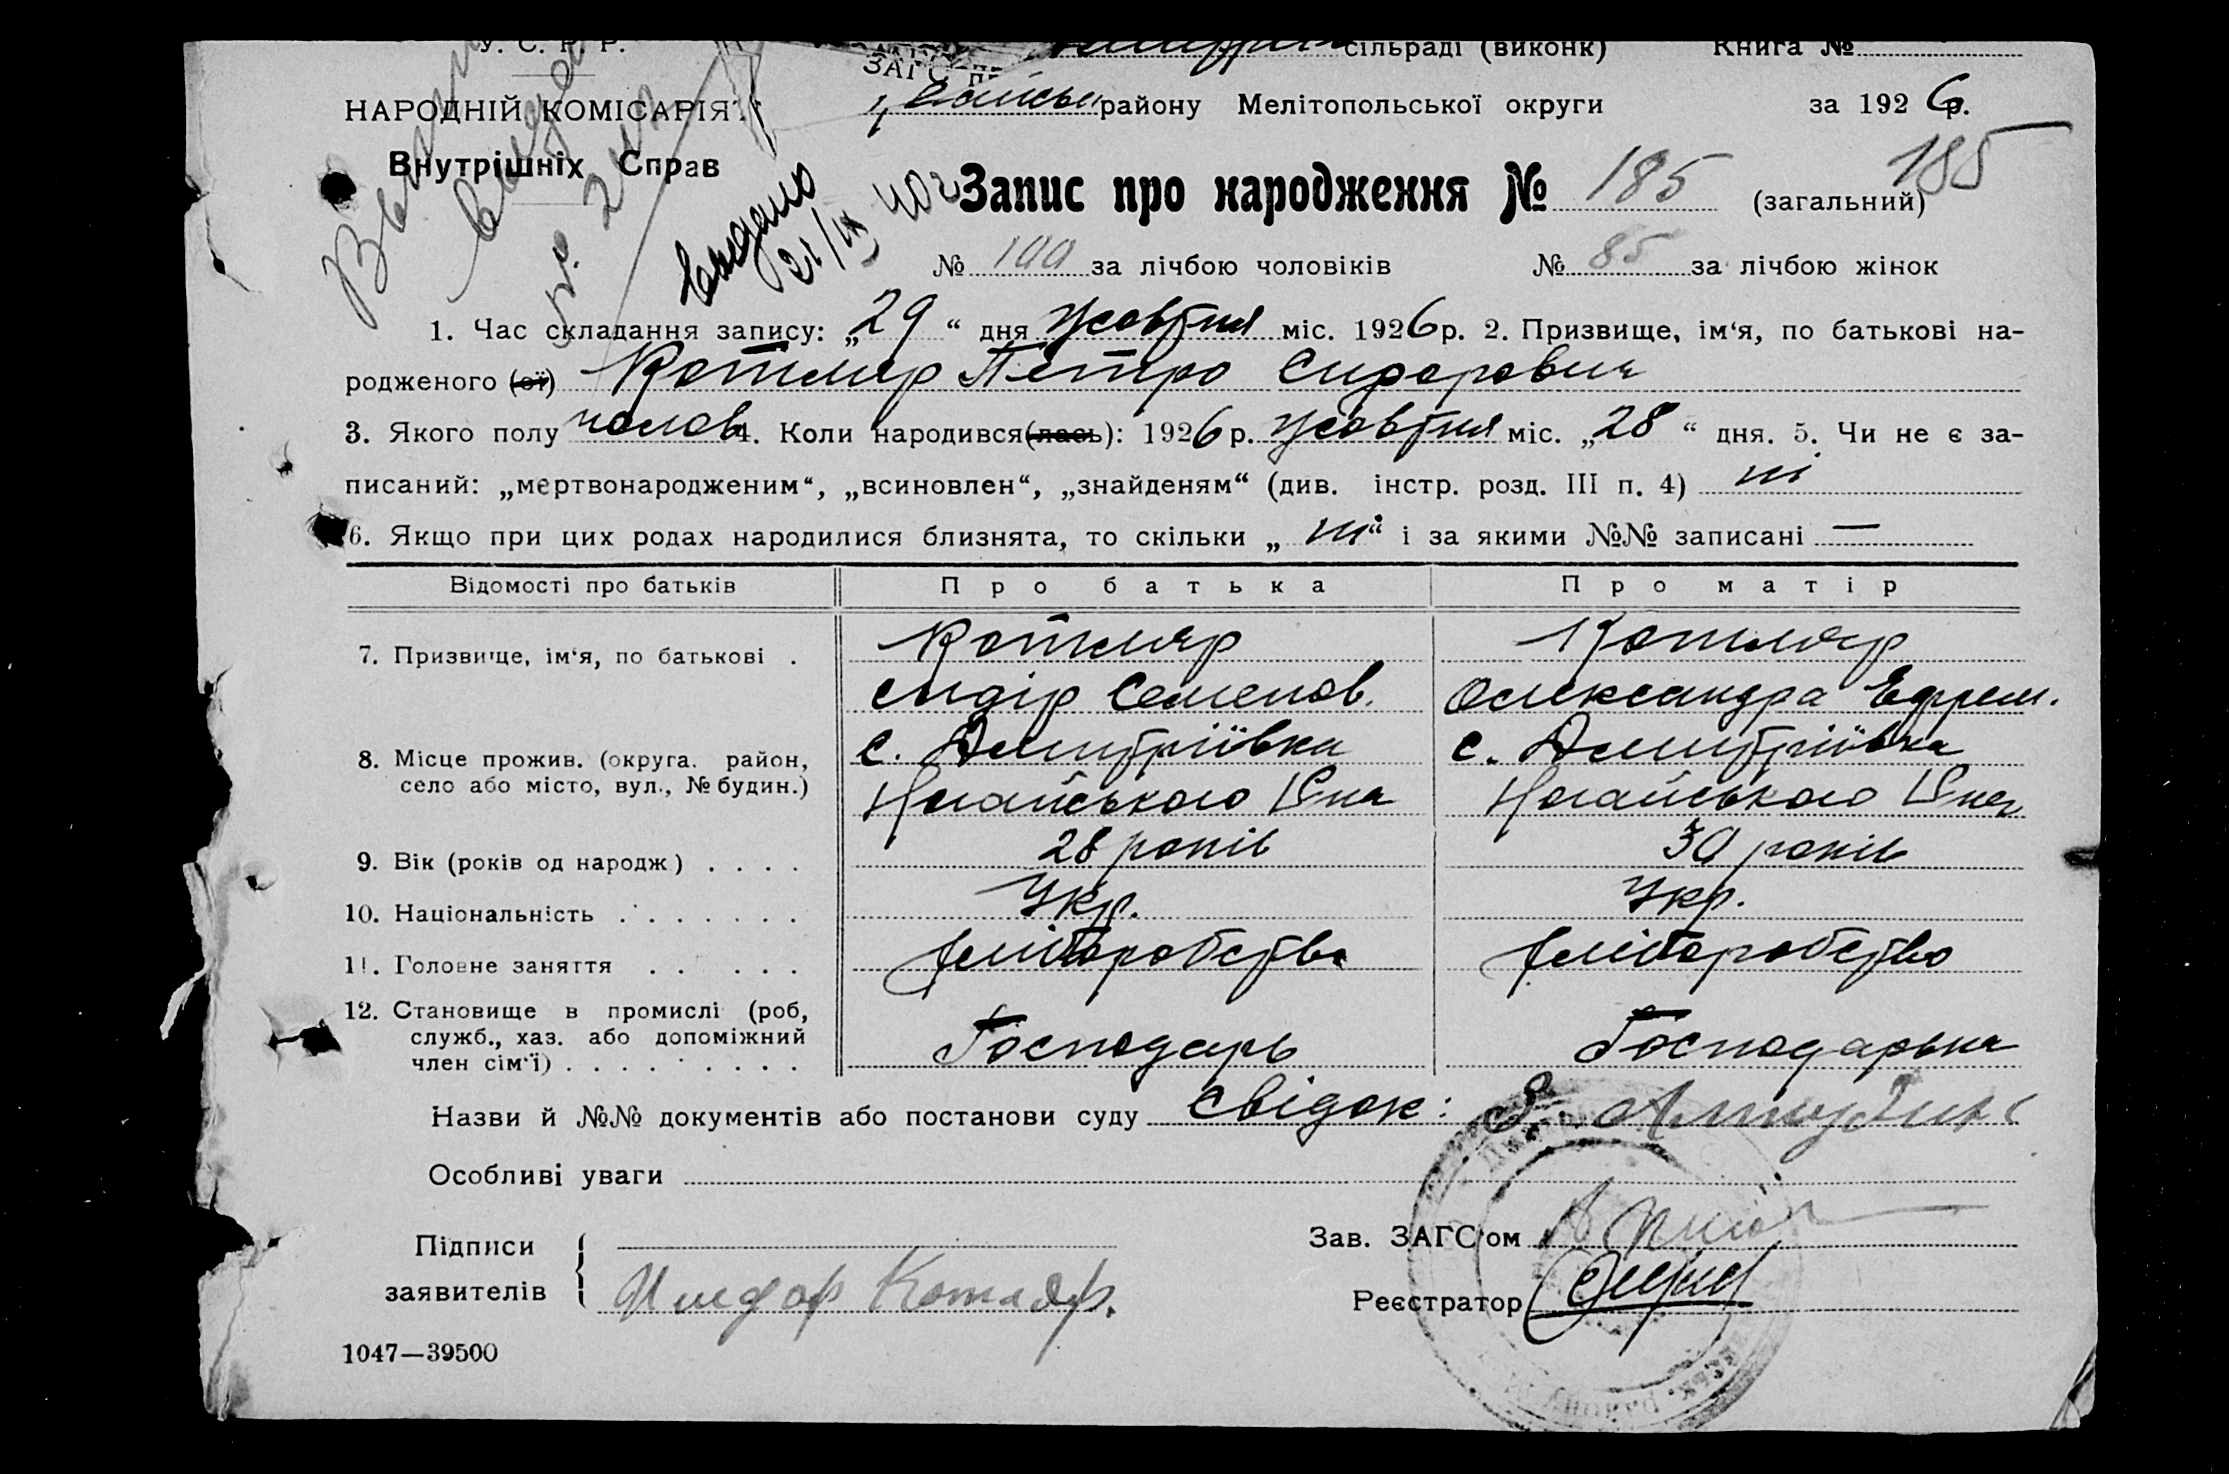 У. С. Р. Р.
ЗАГС п сільраді (виконк) Книга №
НАРОДНІЙ КОМІСАРІЯТ району Мелітопольської округи за 1926 р.
Внутрішніх Справ
видано
Запис про народження № 185 (загальний) 185
№ 100 за лічбою чоловіків № 85 за лічбою жінок
1. Час складання запису: „29“ дня жовтня міс. 1926 р. 2. Призвище, ім‘я, по батькові на-
родженого (ої) Котляр Петро Сидорович
3. Якого полу чолов 4. Коли народився (лась): 1926 р. жовтня міс. „28“ дня. 5. Чи не є за-
писаний: „мертвонародженим“, „всиновлен“, „знайденям“ (див. інстр. розд. III п. 4) ні
6. Якщо при цих родах народилися близнята, то скільки „ні“ і за якими №№ записані —
Відомості про батьків Про батька Про матір
7. Призвище, ім‘я, по батькові . Котляр Котляр
Сидір Семенов. Олександра Ефрем.
8. Місце прожив. (округа. район, с. Дмитріївка с. Дмитріївка
село або місто, вул., № будин.) Ногайського Ногайського
9. Вік (років од народж) . . . . 28 років 30 років
10. Національність . . . . . . . Укр. Укр.
11. Головне заняття . . . . . . хліборобство хліборобство
12. Становище в промислі (роб,
служб., хаз. або допоміжний
член сім‘ї) . . . . . . . . . Господарь Господарька
Назви й №№ документів або постанови суду Свідок:
Особливі уваги
Підписи Зав. ЗАГС‘ом
заявителів Котляр. Реєстратор
1047—39500